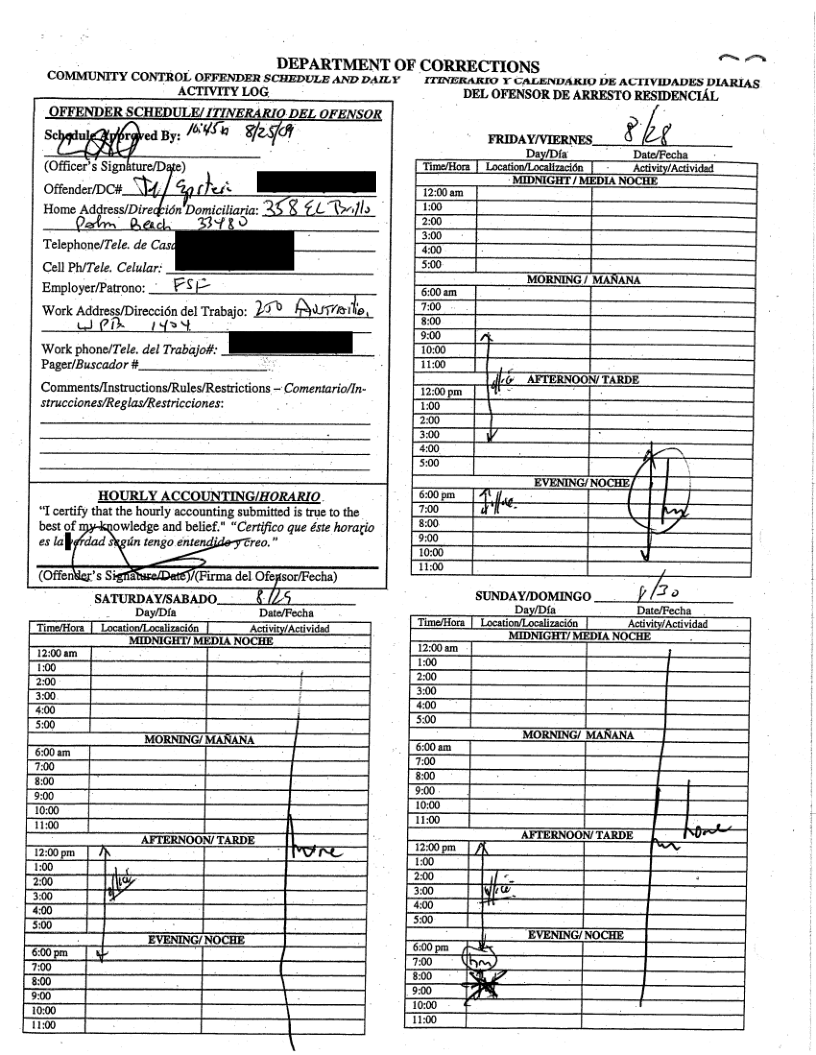 DEPARTMENT OF CORRECTIONS
COMMUNITY CONTROL OFFENDER SCHEDULE AND DAILY ACTIVITY LOG
ITINERARIO Y CALENDARIO DE ACTIVIDADES DIARIAS DEL OFENSOR DE ARRESTO RESIDENCIÁL
OFFENDER SCHEDULE/ ITINERARIO DEL OFENSOR
Schedule Approved By: 8/25/09
(Officer's Signature/Date)
Offender/DC# Epstein
Home Address/Dirección Domiciliaria: 358 EL Brillo
Palm Beach 33480
Telephone/Tele. de Casa
Cell Ph/Tele. Celular:
Employer/Patrono: FSF
Work Address/Dirección del Trabajo: 250 Australia,
WPB 1404
Work phone/Tele. del Trabajo#:
Pager/Buscador #
Comments/Instructions/Rules/Restrictions – Comentario/In-
strucciones/Reglas/Restricciones:
HOURLY ACCOUNTING/HORARIO
"I certify that the hourly accounting submitted is true to the
best of my knowledge and belief." "Certifico que éste horario
es la verdad según tengo entendido y creo."
(Offender's Signature/Date)/(Firma del Ofensor/Fecha)
FRIDAY/VIERNES 8/28
Day/Día Date/Fecha
Time/Hora Location/Localización Activity/Actividad
MIDNIGHT / MEDIA NOCHE
12:00 am
1:00
2:00
3:00
4:00
5:00
MORNING / MAÑANA
6:00 am
7:00
8:00
9:00
10:00
11:00
AFTERNOON/ TARDE
office
12:00 pm
1:00
2:00
3:00
4:00
5:00
EVENING/ NOCHE
6:00 pm
office
7:00 hm
8:00
9:00
10:00
11:00
SATURDAY/SABADO 8/29
Day/Día Date/Fecha
Time/Hora Location/Localización Activity/Actividad
MIDNIGHT/ MEDIA NOCHE
12:00 am
1:00
2:00
3:00
4:00
5:00
MORNING/ MAÑANA
6:00 am
7:00
8:00
9:00
10:00
11:00
AFTERNOON/ TARDE
12:00 pm home
1:00
2:00 office
3:00
4:00
5:00
EVENING/ NOCHE
6:00 pm
7:00
8:00
9:00
10:00
11:00
SUNDAY/DOMINGO 8/30
Day/Día Date/Fecha
Time/Hora Location/Localización Activity/Actividad
MIDNIGHT/ MEDIA NOCHE
12:00 am
1:00
2:00
3:00
4:00
5:00
MORNING/ MAÑANA
6:00 am
7:00
8:00
9:00
10:00
11:00 home
AFTERNOON/ TARDE
12:00 pm hm
1:00
2:00
3:00 office
4:00
5:00
EVENING/ NOCHE
6:00 pm
7:00 hm
8:00
9:00
10:00
11:00